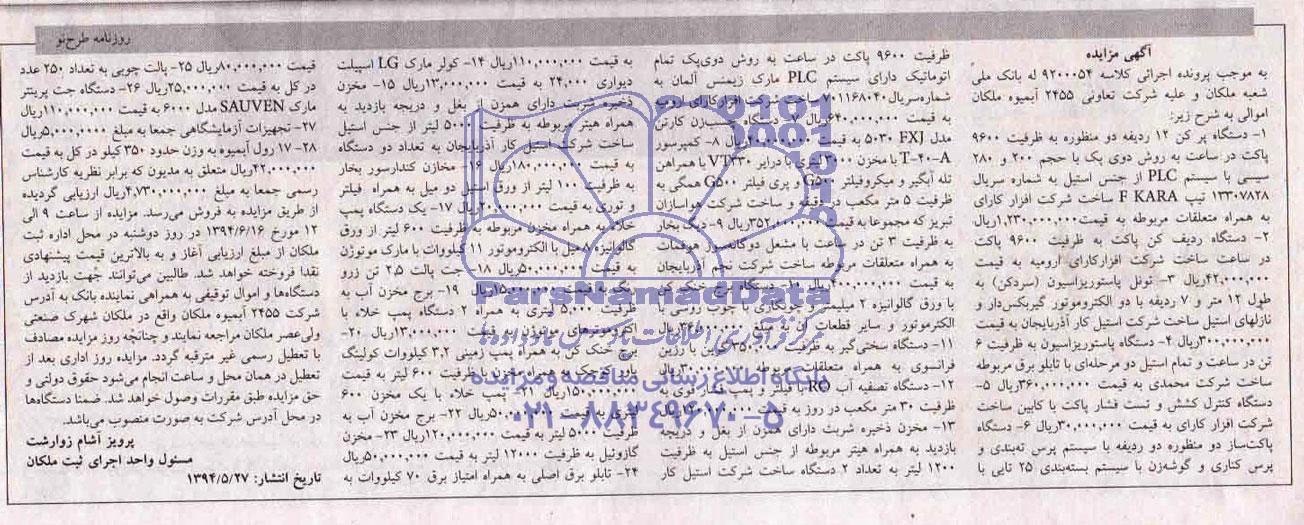 روزنامه طرح‌نو
آگهی مزایده
به موجب پرونده اجرائی کلاسه ۹۲۰۰۰۵۴ له بانک ملی
شعبه ملکان و علیه شرکت تعاونی ۲۴۵۵ آبمیوه ملکان
اموالی به شرح زیر:
۱- دستگاه پر کن ۱۲ ردیفه دو منظوره به ظرفیت ۹۶۰۰
پاکت در ساعت به روش دوی پک با حجم ۲۰۰ و ۲۸۰
سیسی با سیستم PLC از جنس استیل به شماره سریال
۱۳۳۰۷۸۲۸ تیپ F KARA ساخت شرکت افزار کارای
به همراه متعلقات مربوطه به قیمت ۱,۲۳۰,۰۰۰,۰۰۰ریال
۲- دستگاه ردیف کن پاکت به ظرفیت ۹۶۰۰ پاکت
در ساعت ساخت شرکت افزارکارای ارومیه به قیمت
۴۲,۰۰۰,۰۰۰ریال ۳- تونل پاستوریزاسیون (سردکن) به
طول ۱۲ متر و ۷ ردیفه با دو الکتروموتور گیربکس‌دار و
نازلهای استیل ساخت شرکت استیل کار آذربایجان به قیمت
۳۰۰,۰۰۰,۰۰۰ریال ۴- دستگاه پاستوریزاسیون به ظرفیت ۶
تن در ساعت و تمام استیل دو مرحله‌ای با تابلو برق مربوطه
ساخت شرکت محمدی به قیمت ۳۶۰,۰۰۰,۰۰۰ریال ۵-
دستگاه کنترل کشش و تست فشار پاکت با کابین ساخت
شرکت افزار کارای به قیمت ۳۰,۰۰۰,۰۰۰ریال ۶- دستگاه
پاکت‌ساز دو منظوره دو ردیفه با سیستم پرس ته‌بندی و
پرس کناری و گوشه‌زن با سیستم بسته‌بندی ۲۵ تایی با
ظرفیت ۹۶۰۰ پاکت در ساعت به روش دوی‌پک تمام
اتوماتیک دارای سیستم PLC مارک زیمنس آلمان به
شماره‌سریال ۷۰۱۱۶۸۰۴۰ ساخت شرکت افزارکارای ارومیه
به قیمت ۶۴۰,۰۰۰,۰۰۰ریال ۷- دستگاه چسب‌زن کارتن
مدل FXJ ۵۰۳۰ به قیمت ریال ۸- کمپرسور
T-۴۰-A با مخزن ۳۰۰لیتری با درایر VT۳۳۰ با همراهن
تله آبگیر و میکروفیلتر G۵۰۰ و پری فیلتر G۵۰۰ همگی به
ظرفیت ۵ متر مکعب در دقیقه و ساخت شرکت هواسازان
تبریز که مجموعا به قیمت ۳۵۲,۰۰۰,۰۰۰ریال ۹- دیگ بخار
به ظرفیت ۳ تن در ساعت با مشعل دوگانه‌سوز هوفمات
به همراه متعلقات مربوطه ساخت شرکت نجم آذربایجان
به قیمت ۴۰۰,۰۰۰,۰۰۰ریال ۱۰- دستگاه برج خنک کن
با ورق گالوانیزه ۲ میلیمتر و چوبکاری با چوب روسی با
الکترموتور و سایر قطعات آن به مبلغ ریال
۱۱- دستگاه سختی‌گیر به ظرفیت ۳۵۰ با رزین
فرانسوی به همراه متعلقات مربوطه ریال
۱۲- دستگاه تصفیه آب RO با فیلتر و پمپ فشار قوی به
ظرفیت ۳۰ متر مکعب در روز به قیمت ریال
۱۳- مخزن ذخیره شربت دارای همزن از بغل و دریچه
بازدید به همراه هیتر مربوطه از جنس استیل به ظرفیت
۱۲۰۰ لیتر به تعداد ۲ دستگاه ساخت شرکت استیل کار
به قیمت ۱۱۰,۰۰۰,۰۰۰ریال ۱۴- کولر مارک LG اسپیلت
دیواری ۲۴,۰۰۰ به قیمت ۱۳,۰۰۰,۰۰۰ریال ۱۵- مخزن
ذخیره شربت دارای همزن از بغل و دریچه بازدید به
همراه هیتر مربوطه به ظرفیت ۵۰۰۰ لیتر از جنس استیل
ساخت شرکت استیل کار آذربایجان به تعداد دو دستگاه
به قیمت ۱۸۰,۰۰۰,۰۰۰ریال ۱۶- مخازن کندارسور بخار
به ظرفیت ۱۰۰ لیتر از ورق استیل دو میل به همراه فیلتر
و توری به قیمت ۲۰,۰۰۰,۰۰۰ریال ۱۷- یک دستگاه پمپ
خلاء به همراه مخزن مربوطه به ظرفیت ۶۰۰ لیتر از ورق
گالوانیزه ۸میل با الکتروموتور ۱۱ کیلووات با مارک موتوژن
به قیمت ۵۰,۰۰۰,۰۰۰ریال ۱۸- جت پالت ۲,۵ تن زرو
پک به قیمت ۱۵,۰۰۰,۰۰۰ریال ۱۹- برج مخزن آب به
ظرفیت ۵,۰۰۰ لیتری به همراه ۲ دستگاه پمپ خلاء با
الکتروموتورهای موتوژن به قیمت ۱۳,۰۰۰,۰۰۰ریال ۲۰-
برج خنک کن به همراه پمپ زمینی ۳,۲ کیلووات کولینگ
تاور کوچک به همراه مخزن با ظرفیت ۶۰۰ لیتر به قیمت
۱۵۰,۰۰۰,۰۰۰ریال ۲۱- پمپ خلاء با یک مخزن ۶۰۰
لیتری به قیمت ریال ۲۲- برج مخزن آب به
ظرفیت ۵۰۰۰ لیتر به قیمت ۱۲۰,۰۰۰,۰۰۰ریال ۲۳- مخزن
گازوئیل به ظرفیت ۱۲۰۰۰ لیتر به قیمت ۵۰,۰۰۰,۰۰۰ریال
۲۴- تابلو برق اصلی به همراه امتیاز برق ۷۰ کیلووات به
قیمت ۸۰,۰۰۰,۰۰۰ریال ۲۵- پالت چوبی به تعداد ۲۵۰ عدد
در کل به قیمت ۲۵,۰۰۰,۰۰۰ریال ۲۶- دستگاه جت پرینتر
مارک SAUVEN مدل ۶۰۰۰ به قیمت ۱۱۰,۰۰۰,۰۰۰ریال
۲۷- تجهیزات آزمایشگاهی جمعا به مبلغ ۵,۰۰۰,۰۰۰ریال
۲۸- ۱۷ رول آبمیوه به وزن حدود ۳۵۰ کیلو در کل به قیمت
۴۲,۰۰۰,۰۰۰ریال متعلق به مدیون که برابر نظریه کارشناس
رسمی جمعا به مبلغ ۴,۷۳۰,۰۰۰,۰۰۰ریال ارزیابی گردیده
از طریق مزایده به فروش می‌رسد. مزایده از ساعت ۹ الی
۱۲ مورخ ۱۳۹۴/۶/۱۶ در روز دوشنبه در محل اداره ثبت
ملکان از مبلغ ارزیابی آغاز و به بالاترین قیمت پیشنهادی
نقدا فروخته خواهد شد. طالبین می‌توانند جهت بازدید از
دستگاه‌ها و اموال توقیفی به همراهی نماینده بانک به آدرس
شرکت ۲۴۵۵ آبمیوه ملکان واقع در ملکان شهرک صنعتی
ولی‌عصر ملکان مراجعه نمایند و چنانچه روز مزایده مصادف
با تعطیل رسمی غیر مترقبه گردد. مزایده روز اداری بعد از
تعطیل در همان محل و ساعت انجام می‌شود حقوق دولتی و
حق مزایده طبق مقررات وصول خواهد شد. ضمنا دستگاه‌ها
در محل آدرس شرکت به صورت منصوب می‌باشد.
پرویز آشام زوارشت
مسئول واحد اجرای ثبت ملکان
تاریخ انتشار: ۱۳۹۴/۵/۲۷
ParsNamadData
پایگاه اطلاع رسانی مناقصه و مزایده
۰۲۱-۸۸۳۴۹۶۷۰-۵